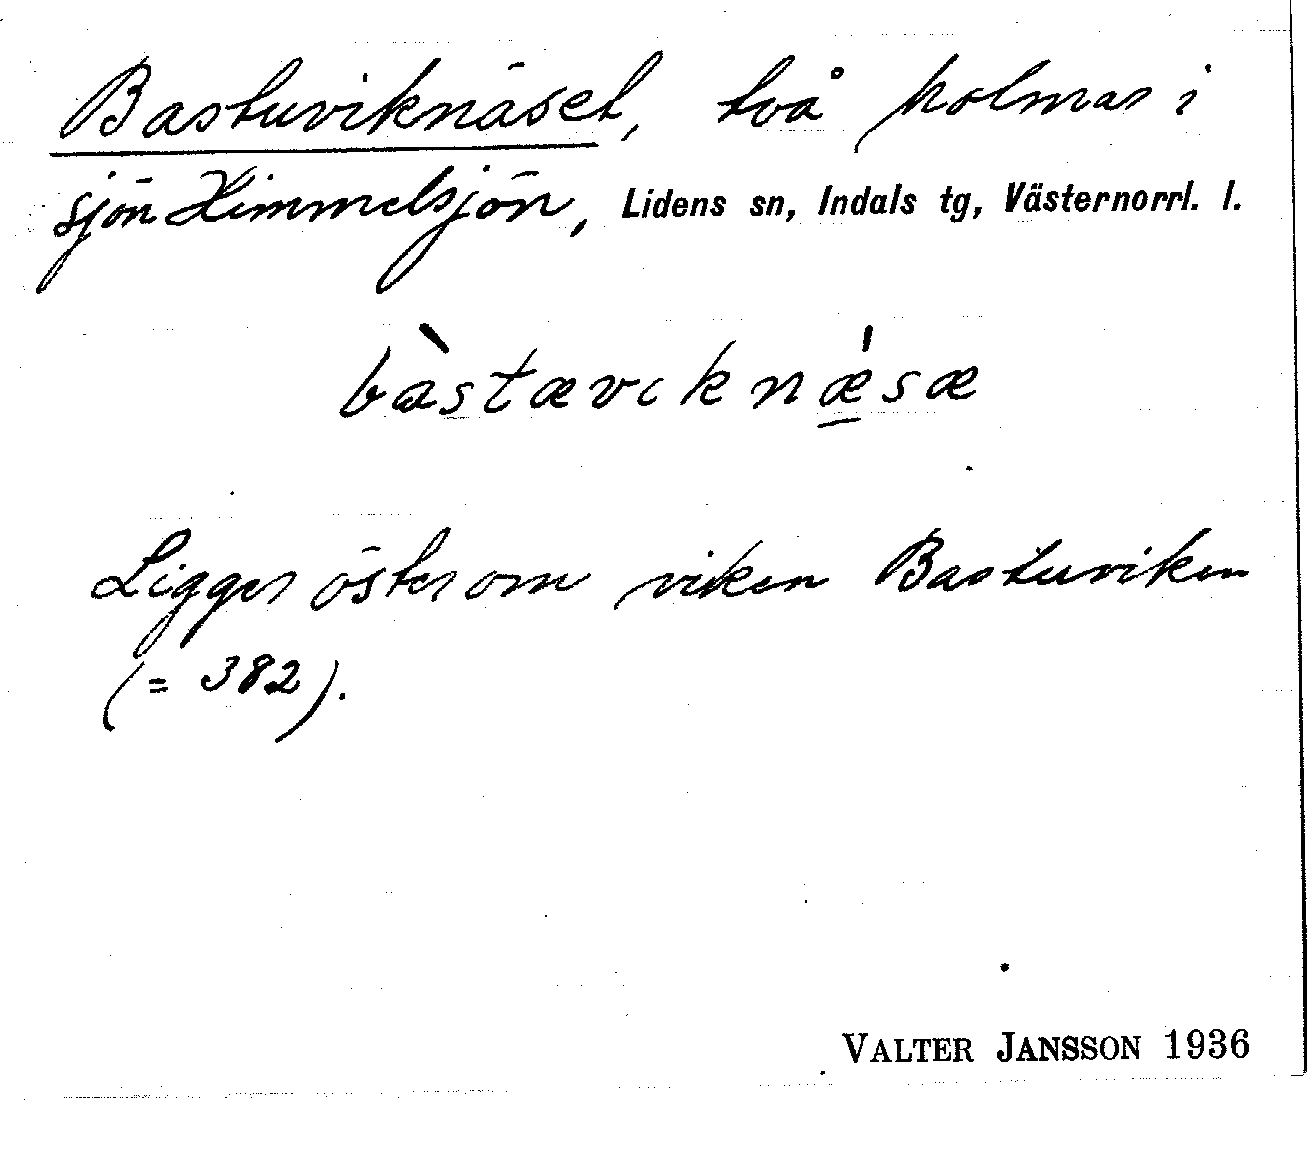 Bastuviknäset, två holmar i
sjön Himmelsjön, Lidens sn, Indals tg, Västernorrl. l.
bàstævıknǽsæ
Ligger öster om viken Bastuviken
(= 382).
VALTER JANSSON 1936